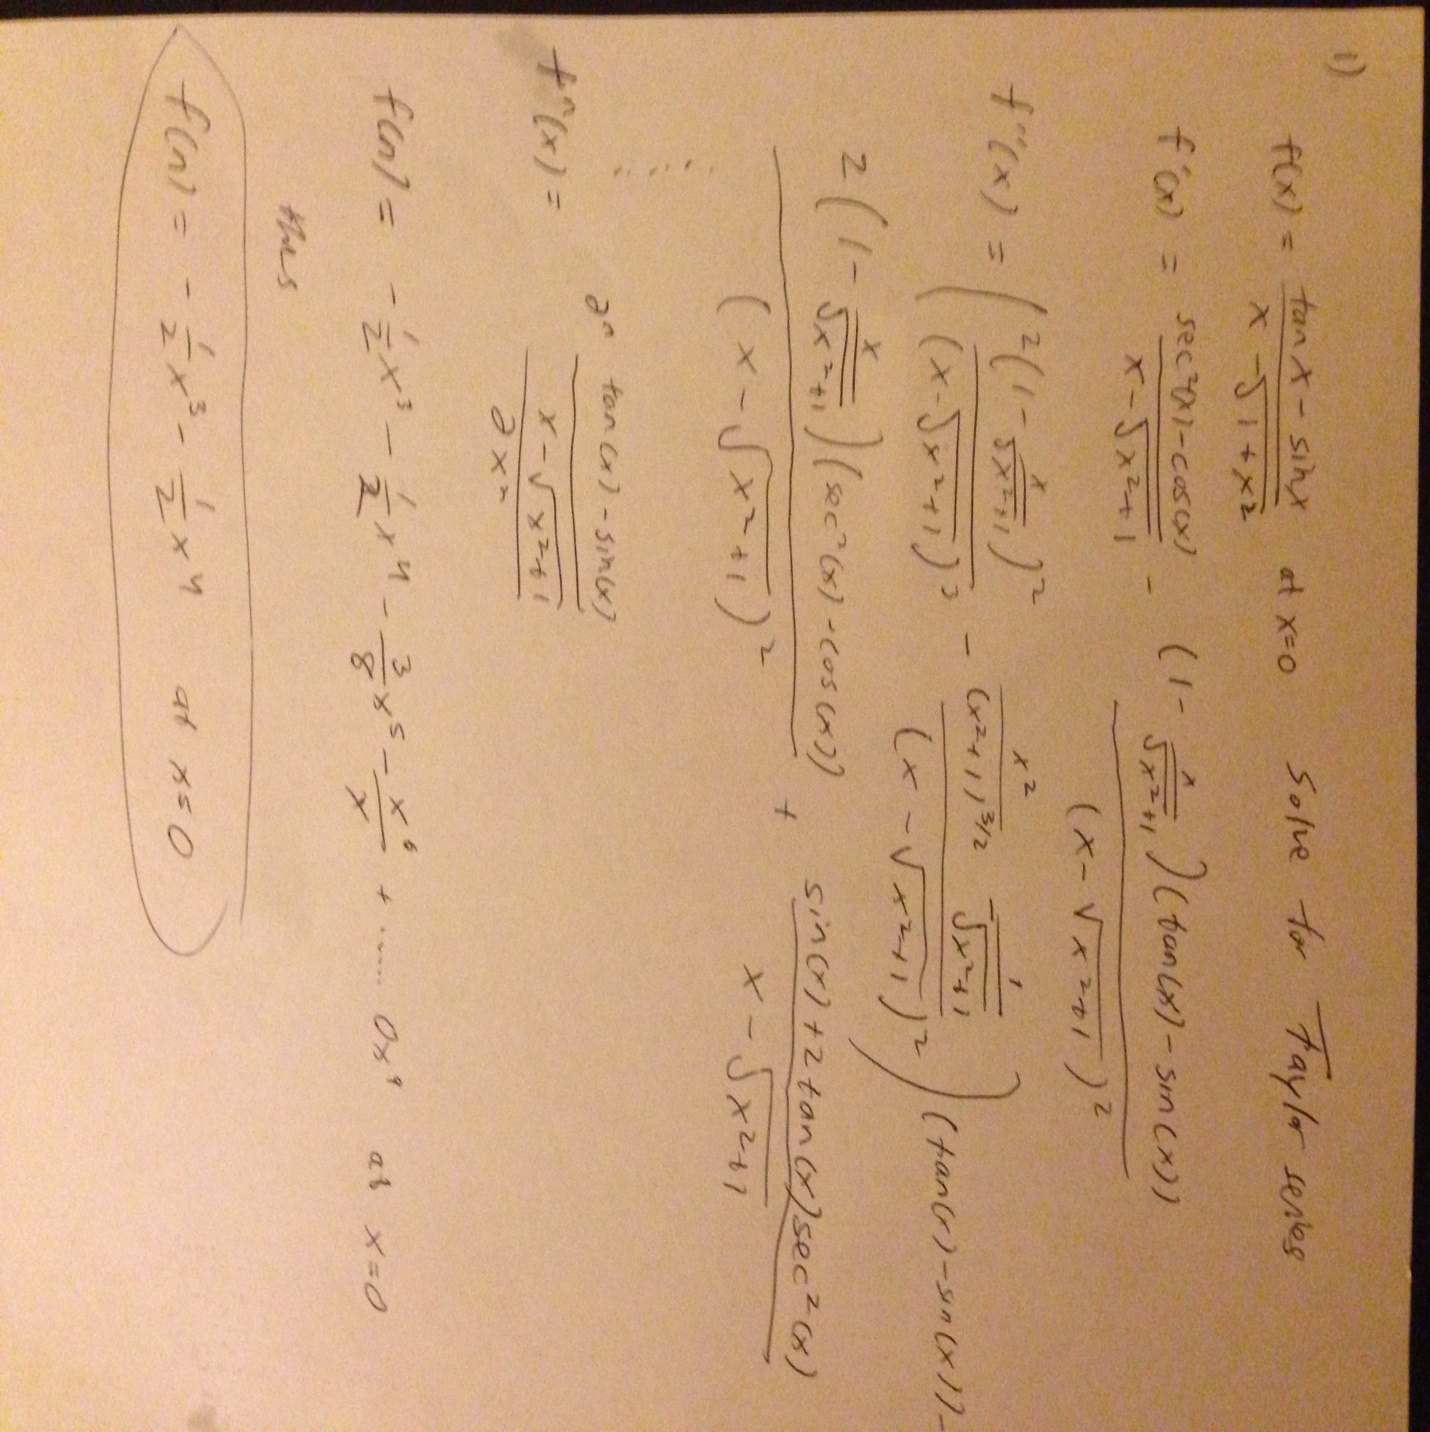 1)
f(x) = (tan x - sin x)/(x - √(1+x²)) at x=0 Solve for Taylor series
f'(x) = (sec²(x) - cos(x))/(x - √(x²+1)) - ((1 - x/√(x²+1))(tan(x) - sin(x)))/(x - √(x²+1))²
f''(x) = ((2(1 - x/√(x²+1))²)/(x - √(x²+1))³ - (x²/(x²+1)^(3/2) - 1/√(x²+1))/(x - √(x²+1))²)(tan(x) - sin(x)) -
(2(1 - x/√(x²+1))(sec²(x) - cos(x)))/(x - √(x²+1))² + (sin(x) + 2tan(x)sec²(x))/(x - √(x²+1))
......
fⁿ(x) = ∂ⁿ (tan(x) - sin(x))/(x - √(x²+1)) / ∂xⁿ
f(n) = - 1/2 x³ - 1/2 x⁴ - 3/8 x⁵ - x⁶/x + ...... 0x⁹ at x=0
thus
f(n) = - 1/2 x³ - 1/2 x⁴ at x=0